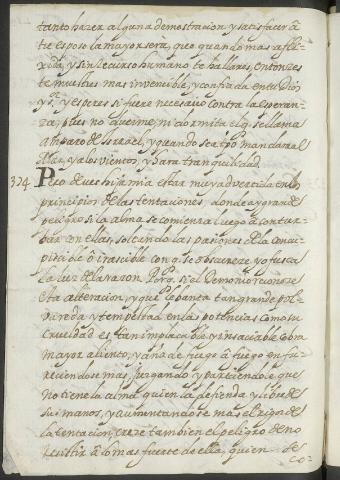 tanto hazer alguna demostracion, y satisfacer à
tu esposo la mayor sera, que quando mas afli-
xida, y sin recurso humano te hallares, entonzes
te muestres mas invencible, y confiada en tu Dios
y Sr. y esperes si fuere necesario contra la esperan-
za; pues no duerme, ni dormita el q. se llama
amparo de Isrrael, y quando sea tpo mandarà al
Mar, y a los vientos, y hara tranquilidad.
324 Pero deves hija mia estar muy advertida en los
principios de las tentaciones, donde ay grande
peligro si la alma se comienza luego a contur-
bar con ellas, soltando las pasiones de la concu-
piscible ò irascible con q. se obscureze y ofusca
la luz de la razon. Porq. si el Demonio reconoze
esta alteracion, y que levanta tan grande pol-
vareda, y tempestad en las potencias, como su
crueldad es tan implacable, y insaciable cobra
mayor aliento, y añade fuego à fuego enfu-
reciendose mas, juzgando, y pareciendole que
no tiene la alma quien la defienda, y libre de
sus manos, y aumentandose mas el rigor de
la tentacion, creze tambien el peligro de no
resistir à lo mas fuerte de ella, quien se
co-